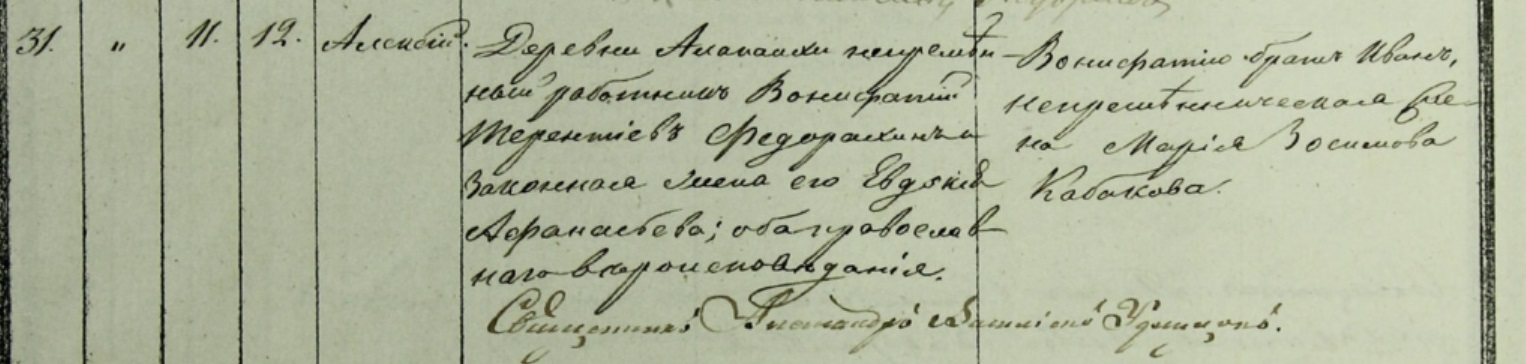 31. " 11. 12. Алексѣй.
Деревни Алапаихи непремѣн-
ный работникъ Вонифатій
Терентіевъ Федорахинъ и
законная жена его Евдокія
Афанасьева; оба православ-
наго вѣроисповѣданія.
Вонифатію братъ Иванъ,
непремѣнническая Же-
на Марія Зосимова
Кабакова.
Священникъ Александръ